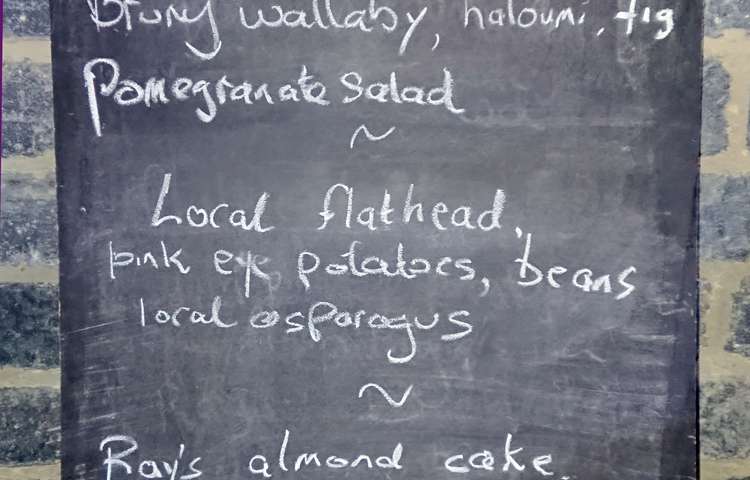 wallaby, haloumi, fig
Pomegranate Salad
~
Local flathead,
pink eye potatoes, beans
local asparagus
~
Ray's almond cake.